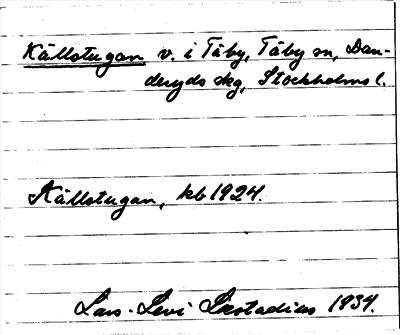 Källstugan v. i Täby, Täby sn, Dan-
deryds skg, Stockholms l.
Källstugan, kb 1924.
Lars-Levi Læstadius 1934.